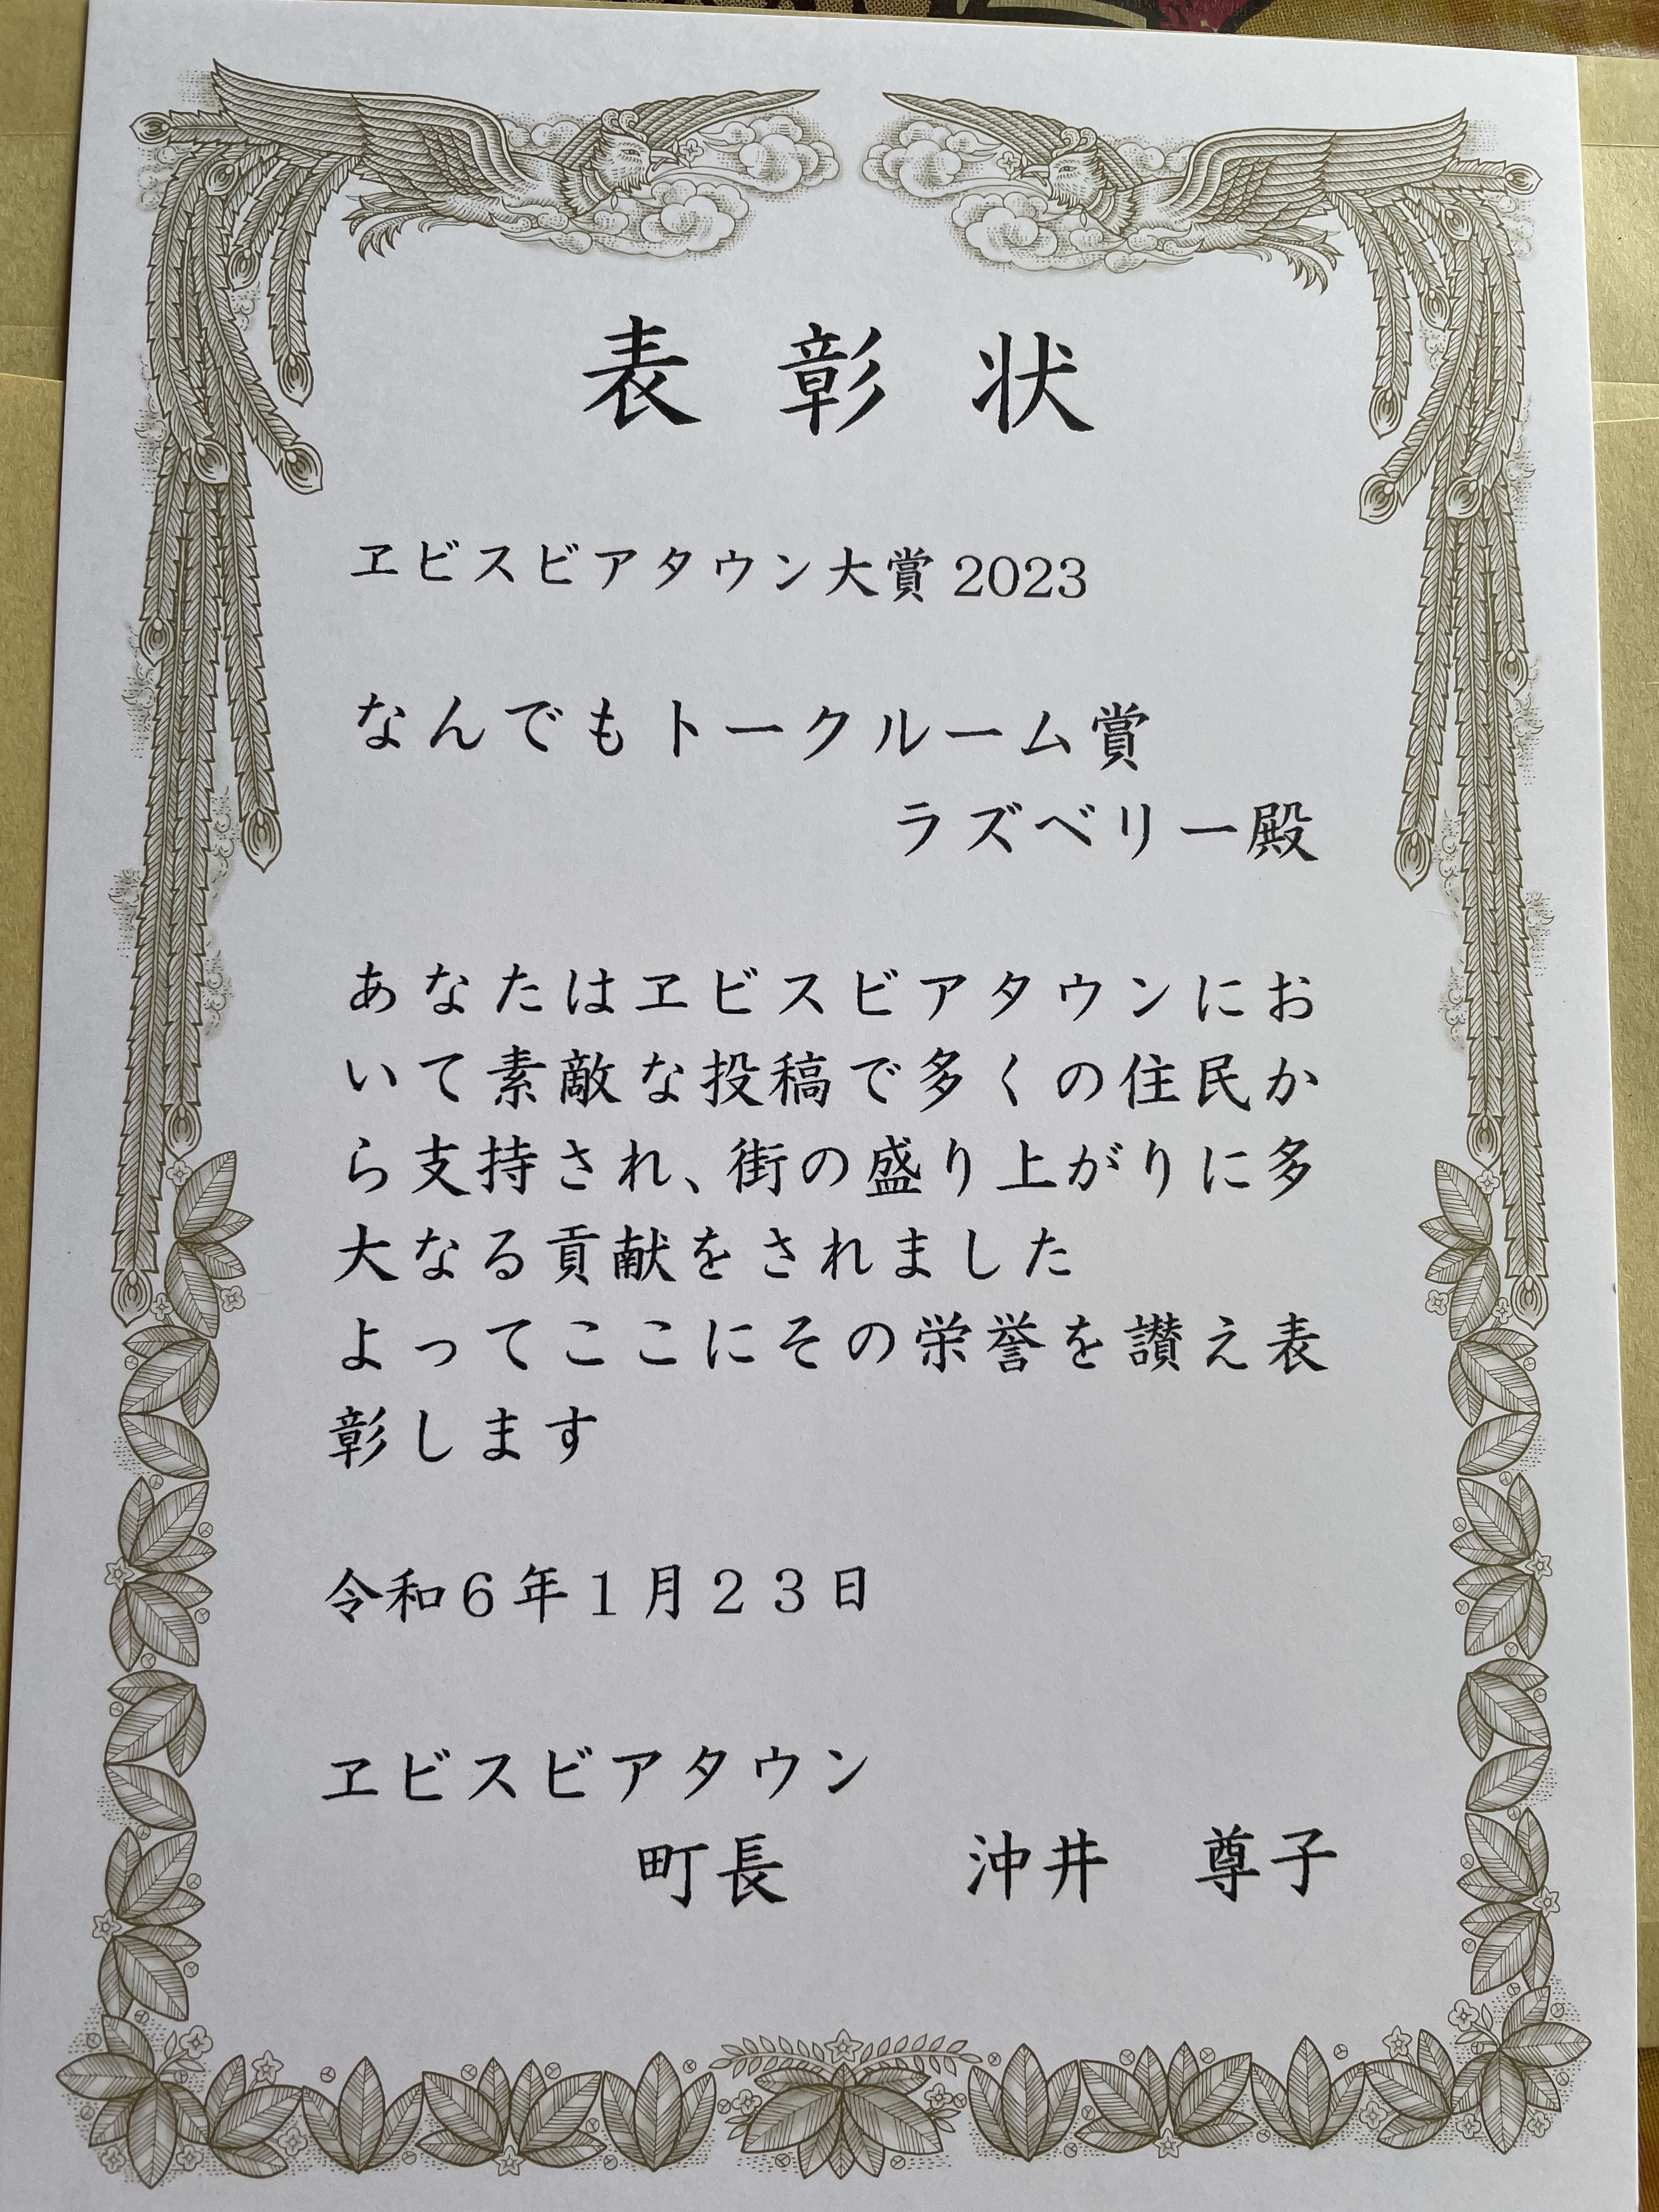 表彰状
ヱビスビアタウン大賞2023
なんでもトークルーム賞
ラズベリー殿
あなたはヱビスビアタウンにお
いて素敵な投稿で多くの住民か
ら支持され、街の盛り上がりに多
大なる貢献をされました
よってここにその栄誉を讃え表
彰します
令和６年１月２３日
ヱビスビアタウン
町長　　沖井　尊子